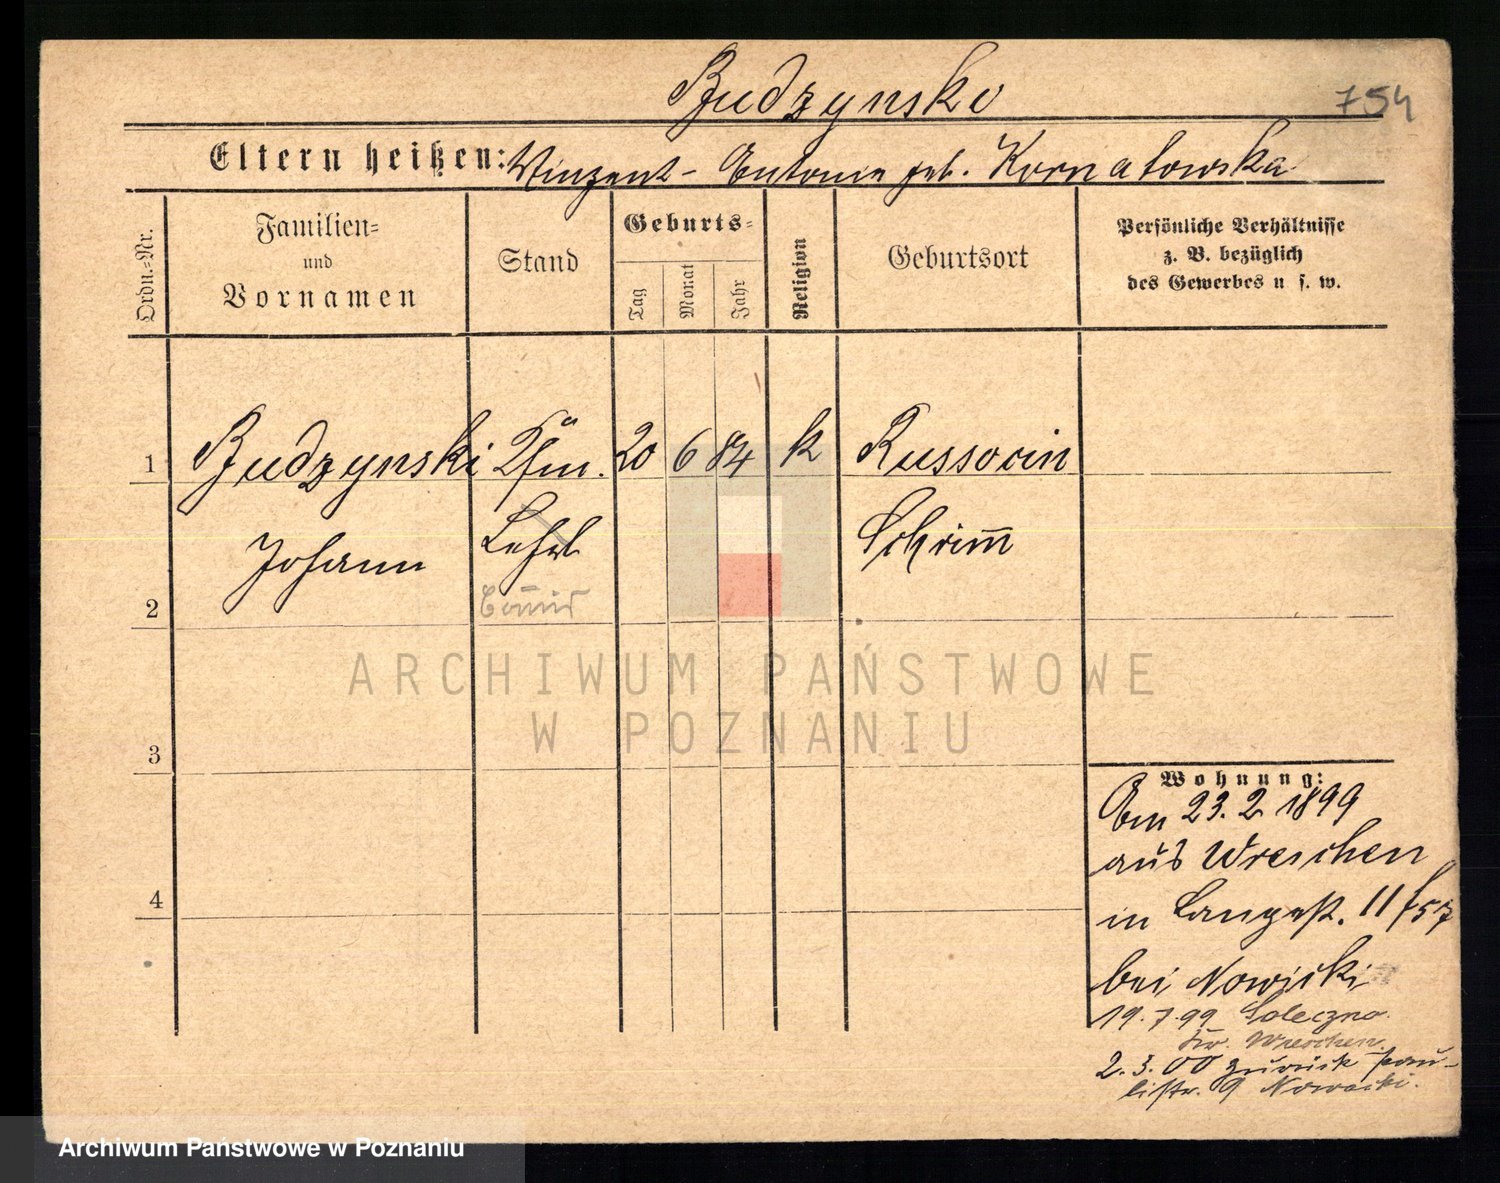 Budzynski
754
Eltern heißen: Vinzent - Antonie geb. Kornatowska
Ordn.-Nr.
Familien- und Vornamen
Stand
Geburts-
Tag
Monat
Jahr
Religion
Geburtsort
Persönliche Verhältnisse
z. B. bezüglich
des Gewerbes u. s. w.
1 Budzynski Kfm. 20 6 84 k Russocin
Johann Lehrl Schrim̅
2
3
4
ARCHIWUM PAŃSTWOWE
W POZNANIU
Wohnung:
Am 23.2 1899
aus Wreschen
in Langestr. 11/57
bei Nowicki
19.7.99 Soleczno
Kr. Wreschen.
2.3.00 zurück Pau-
listr. 9 Nowacki.
Archiwum Państwowe w Poznaniu